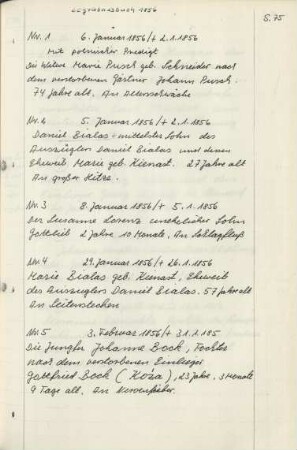 Begräbnisbuch 1856
S. 75
Nr. 1 6. Januar 1856/+ 2.1.1856
Mit polnischer Predigt
Die Witwe Marie Prusch geb. Schneider nach
dem verstorbenen Gärtner Johann Prusch.
74 Jahre alt. An Altersschwäche
Nr. 2 5. Januar 1856/+ 2.1.1856
Daniel Bialas - mittelster Sohn des
Auszüglers Daniel Bialas und dessen
Eheweib Marie geb. Kienast. 27 Jahre alt
An großer Hitze.
Nr. 3 8. Januar 1856/+ 5.1.1856
Der Susanne Lorenz unehelicher Sohn
Gottlieb 2 Jahre 10 Monate. An Schlagfluß
Nr. 4 29. Januar 1856/+ 26.1.1856
Marie Bialas geb. Kienast, Eheweib
des Auszüglers Daniel Bialas. 57 Jahre alt
An Seitenstechen
Nr. 5 3. Februar 1856/+ 31.1.185
Die Jungfer Johanne Bock, Tochter
nach dem verstorbenen Einlieger
Gottfried Bock (Koza), 23 Jahre, 3 Monate
9 Tage alt. An Nervenfieber.